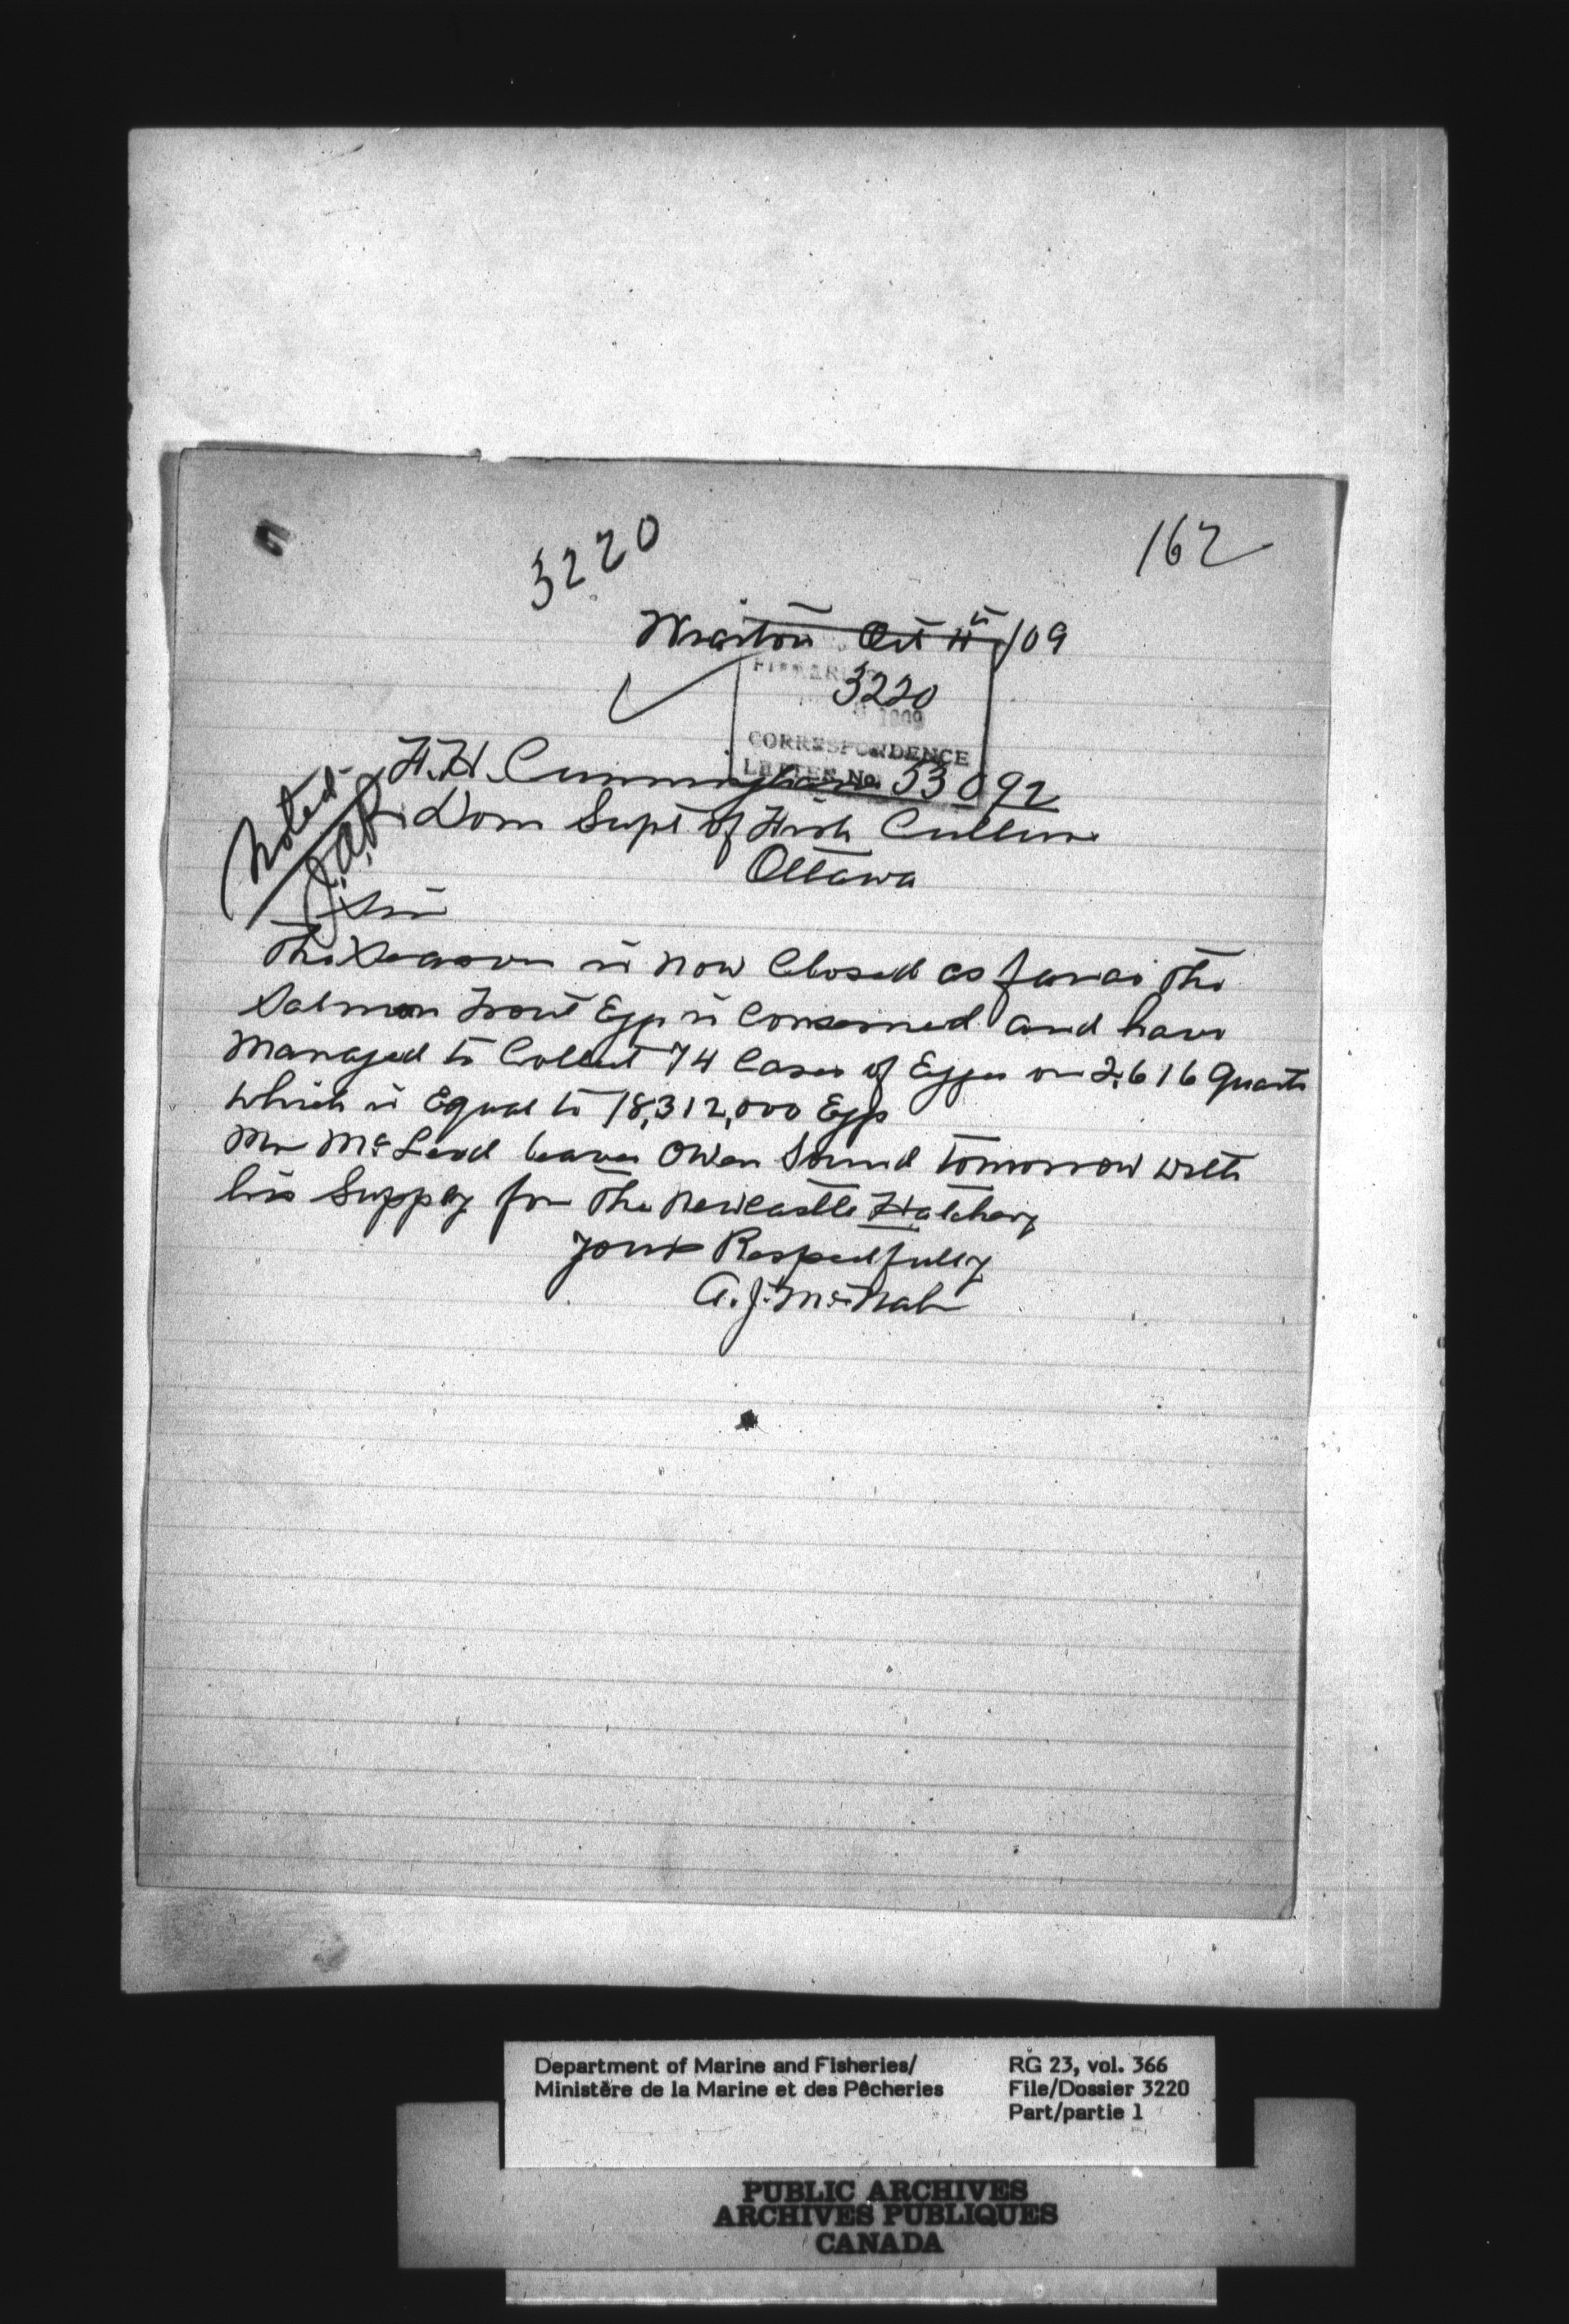 3220
162
Wiarton Oct 11th/09
3220
1909
CORRESPONDENCE
LETTER No. 53092
F.H. Cunningham
Dom Supt of Fish Culture
Ottawa
Noted
Sir
The Season is now Closed as far as the
Salmon Trout Eggs is Concerned and have
Managed to Collect 74 Cases of Eggs or 2,616 Quarts
which is Equal to 18,312,000 Eggs
Mr McLeod leaves Owen Sound tomorrow with
his Supply for the Newcastle Hatchery
Yours Respectfully
A.J. McNab
Department of Marine and Fisheries/
Ministère de la Marine et des Pêcheries
RG 23, vol. 366
File/Dossier 3220
Part/partie 1
PUBLIC ARCHIVES
ARCHIVES PUBLIQUES
CANADA